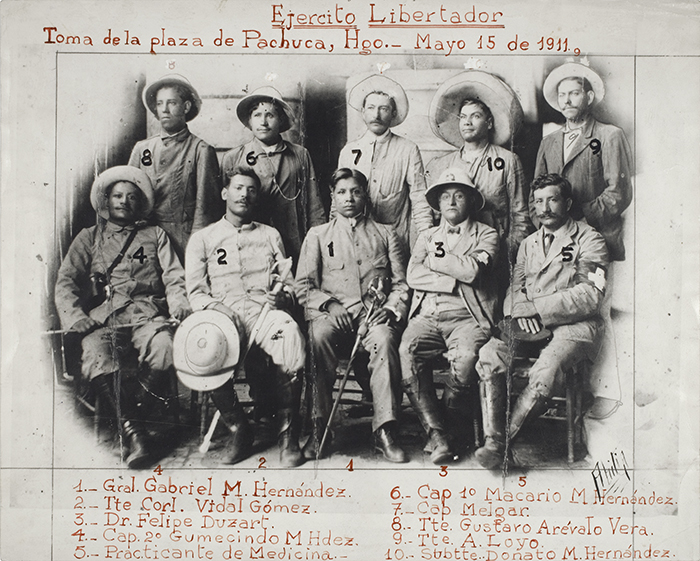 Ejercito Libertador
Toma de la plaza de Pachuca, Hgo.- Mayo 15 de 1911.
8 6 7 10 9
4 2 1 3 5
4 2 1 3 5
1.- Gral. Gabriel M. Hernández.
2.- Tte Corl. Vidal Gómez.
3.- Dr. Felipe Duzart.
4.- Cap. 2º Gumecindo M Hdez.
5.- Practicante de Medicina.-
6.- Cap 1º Macario M Hernández.
7.- Cab Melgar.
8.- Tte. Gustavo Arévalo Vera.
9.- Tte. A. Loyo.
10.- Subtte. Donato M. Hernández.